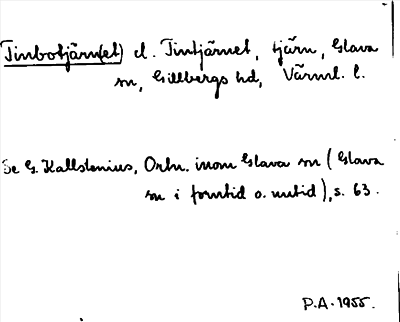 Tinbotjärn(et) el. Tintjärnet, tjärn, Glava
sn, Gillbergs hd, Värml. l.
Se G. Kallstenius, Ortn. inom Glava sn (Glava
sn i forntid o. nutid), s. 63.
P.A. 1955.